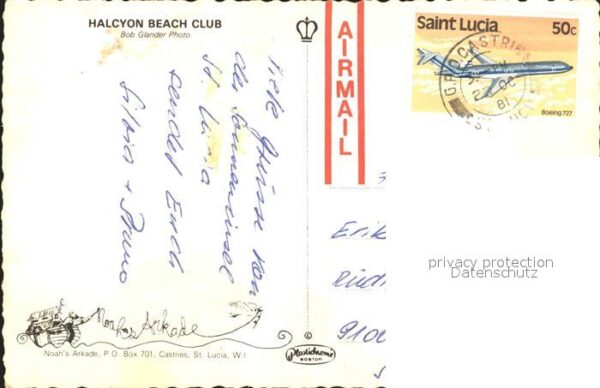 HALCYON BEACH CLUB
Bob Glander Photo
Viele Grüsse von
der Sonneninsel
St. Lucia
sendet Euch
Silvia + Bruno
AIRMAIL
Saint Lucia 50c
G.P.O CASTRIES
81
ST. LUCIA
Boeing 727
Erik
Rüdi
910
privacy protection
Datenschutz
Noah's Arkade
Noah's Arkade, P.O. Box 701, Castries, St. Lucia, W.I
Plastichrome
BOSTON